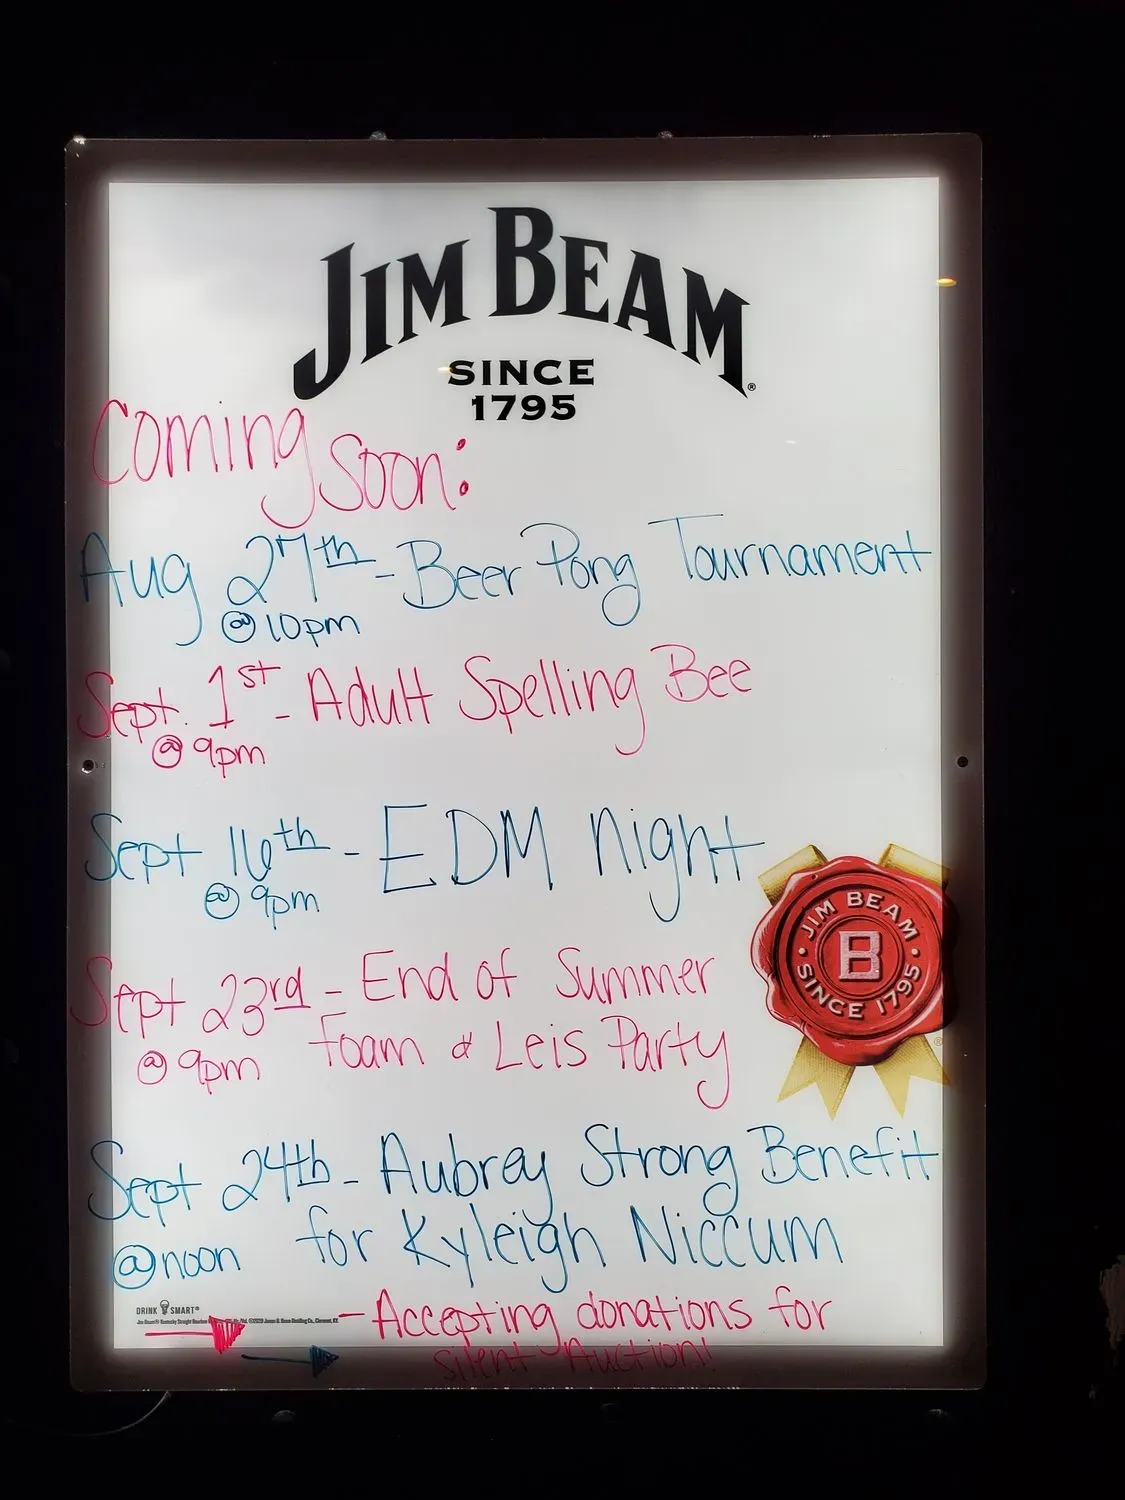 JIM BEAM®
SINCE
1795
Coming Soon:
Aug 27th - Beer Pong Tournament
@ 10pm
Sept. 1st - Adult Spelling Bee
@ 9pm
Sept 16th - EDM night
@ 9pm
JIM BEAM
B
SINCE 1795
®
Sept 23rd - End of Summer
@ 9pm Foam & Leis Party
Sept 24th - Aubrey Strong Benefit
@noon for Kyleigh Niccum
DRINK SMART®
- Accepting donations for
silent Auction!